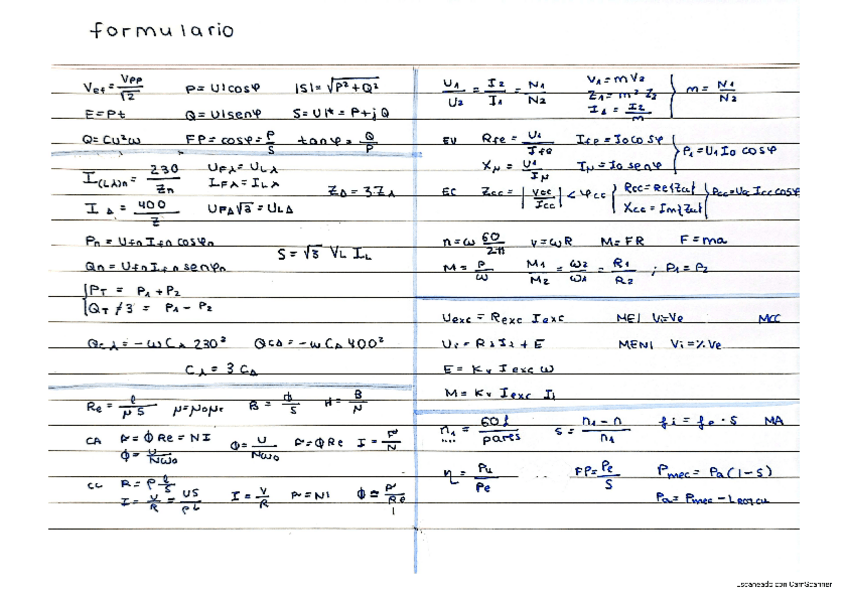 formulario
Vef = Vpp/√2   P = UIcosφ   |S| = √(P² + Q²)
E = Pt   Q = UIsenφ   S = UI* = P + jQ
Q = CU²ω   FP = cosφ = P/S   tanφ = Q/P
I(Lλ)n = 230/Zn   UFλ = ULλ
IFλ = ILλ
ZΔ = 3Zλ
IΔ = 400/Z   UFΔ√3 = ULΔ
Pn = Ufn Ifn cosφn
S = √3 VL IL
Qn = Ufn Ifn senφn
PT = P1 + P2
QT/√3 = P1 - P2
Qcλ = -ωCλ 230²   QCΔ = -ωCΔ 400²
Cλ = 3CΔ
Re = l/μS   μ = μ0μr   B = ϕ/S   H = B/μ
CA   F = ϕRe = NI   ϕ = U/Nω0   F = ϕRe   I = F/N
ϕ = U/Nω0
CC   R = ρ l/S
I = V/R = US/ρL   I = V/R   F = NI   ϕ = F/Re
U1/U2 = I2/I1 = N1/N2   V1 = mV2
Z1 = m² Z2
I1 = I2/m
m = N1/N2
EV   Rfe = U1/Ife   Ife = I0cosφ
P1 = U1 I0 cosφ
Xμ = U1/Iμ   Iμ = I0 senφ
EC   Zcc = |Vcc/Icc| < φcc   Rcc = Re{Zcc}
Xcc = Im{Zcc}
Pcc = Vcc Icc cosφ
n = ω 60/2π   v = ωR   M = FR   F = ma
M = P/ω   M1/M2 = ω2/ω1 = R1/R2 ; P1 = P2
Uexc = Rexc Iexc   MEI Vi = Ve   MCC
Ui = RiIi + E   MENI Vi = %Ve
E = Kv Iexc ω
M = Kv Iexc Ii
n1 = 60f/pares   s = n1 - n/n1   fi = fe · s   MA
η = Pu/Pe   FP = Pe/S   Pmec = Pa(1 - s)
Pa = Pmec - Lrotcu
Escaneado con CamScanner